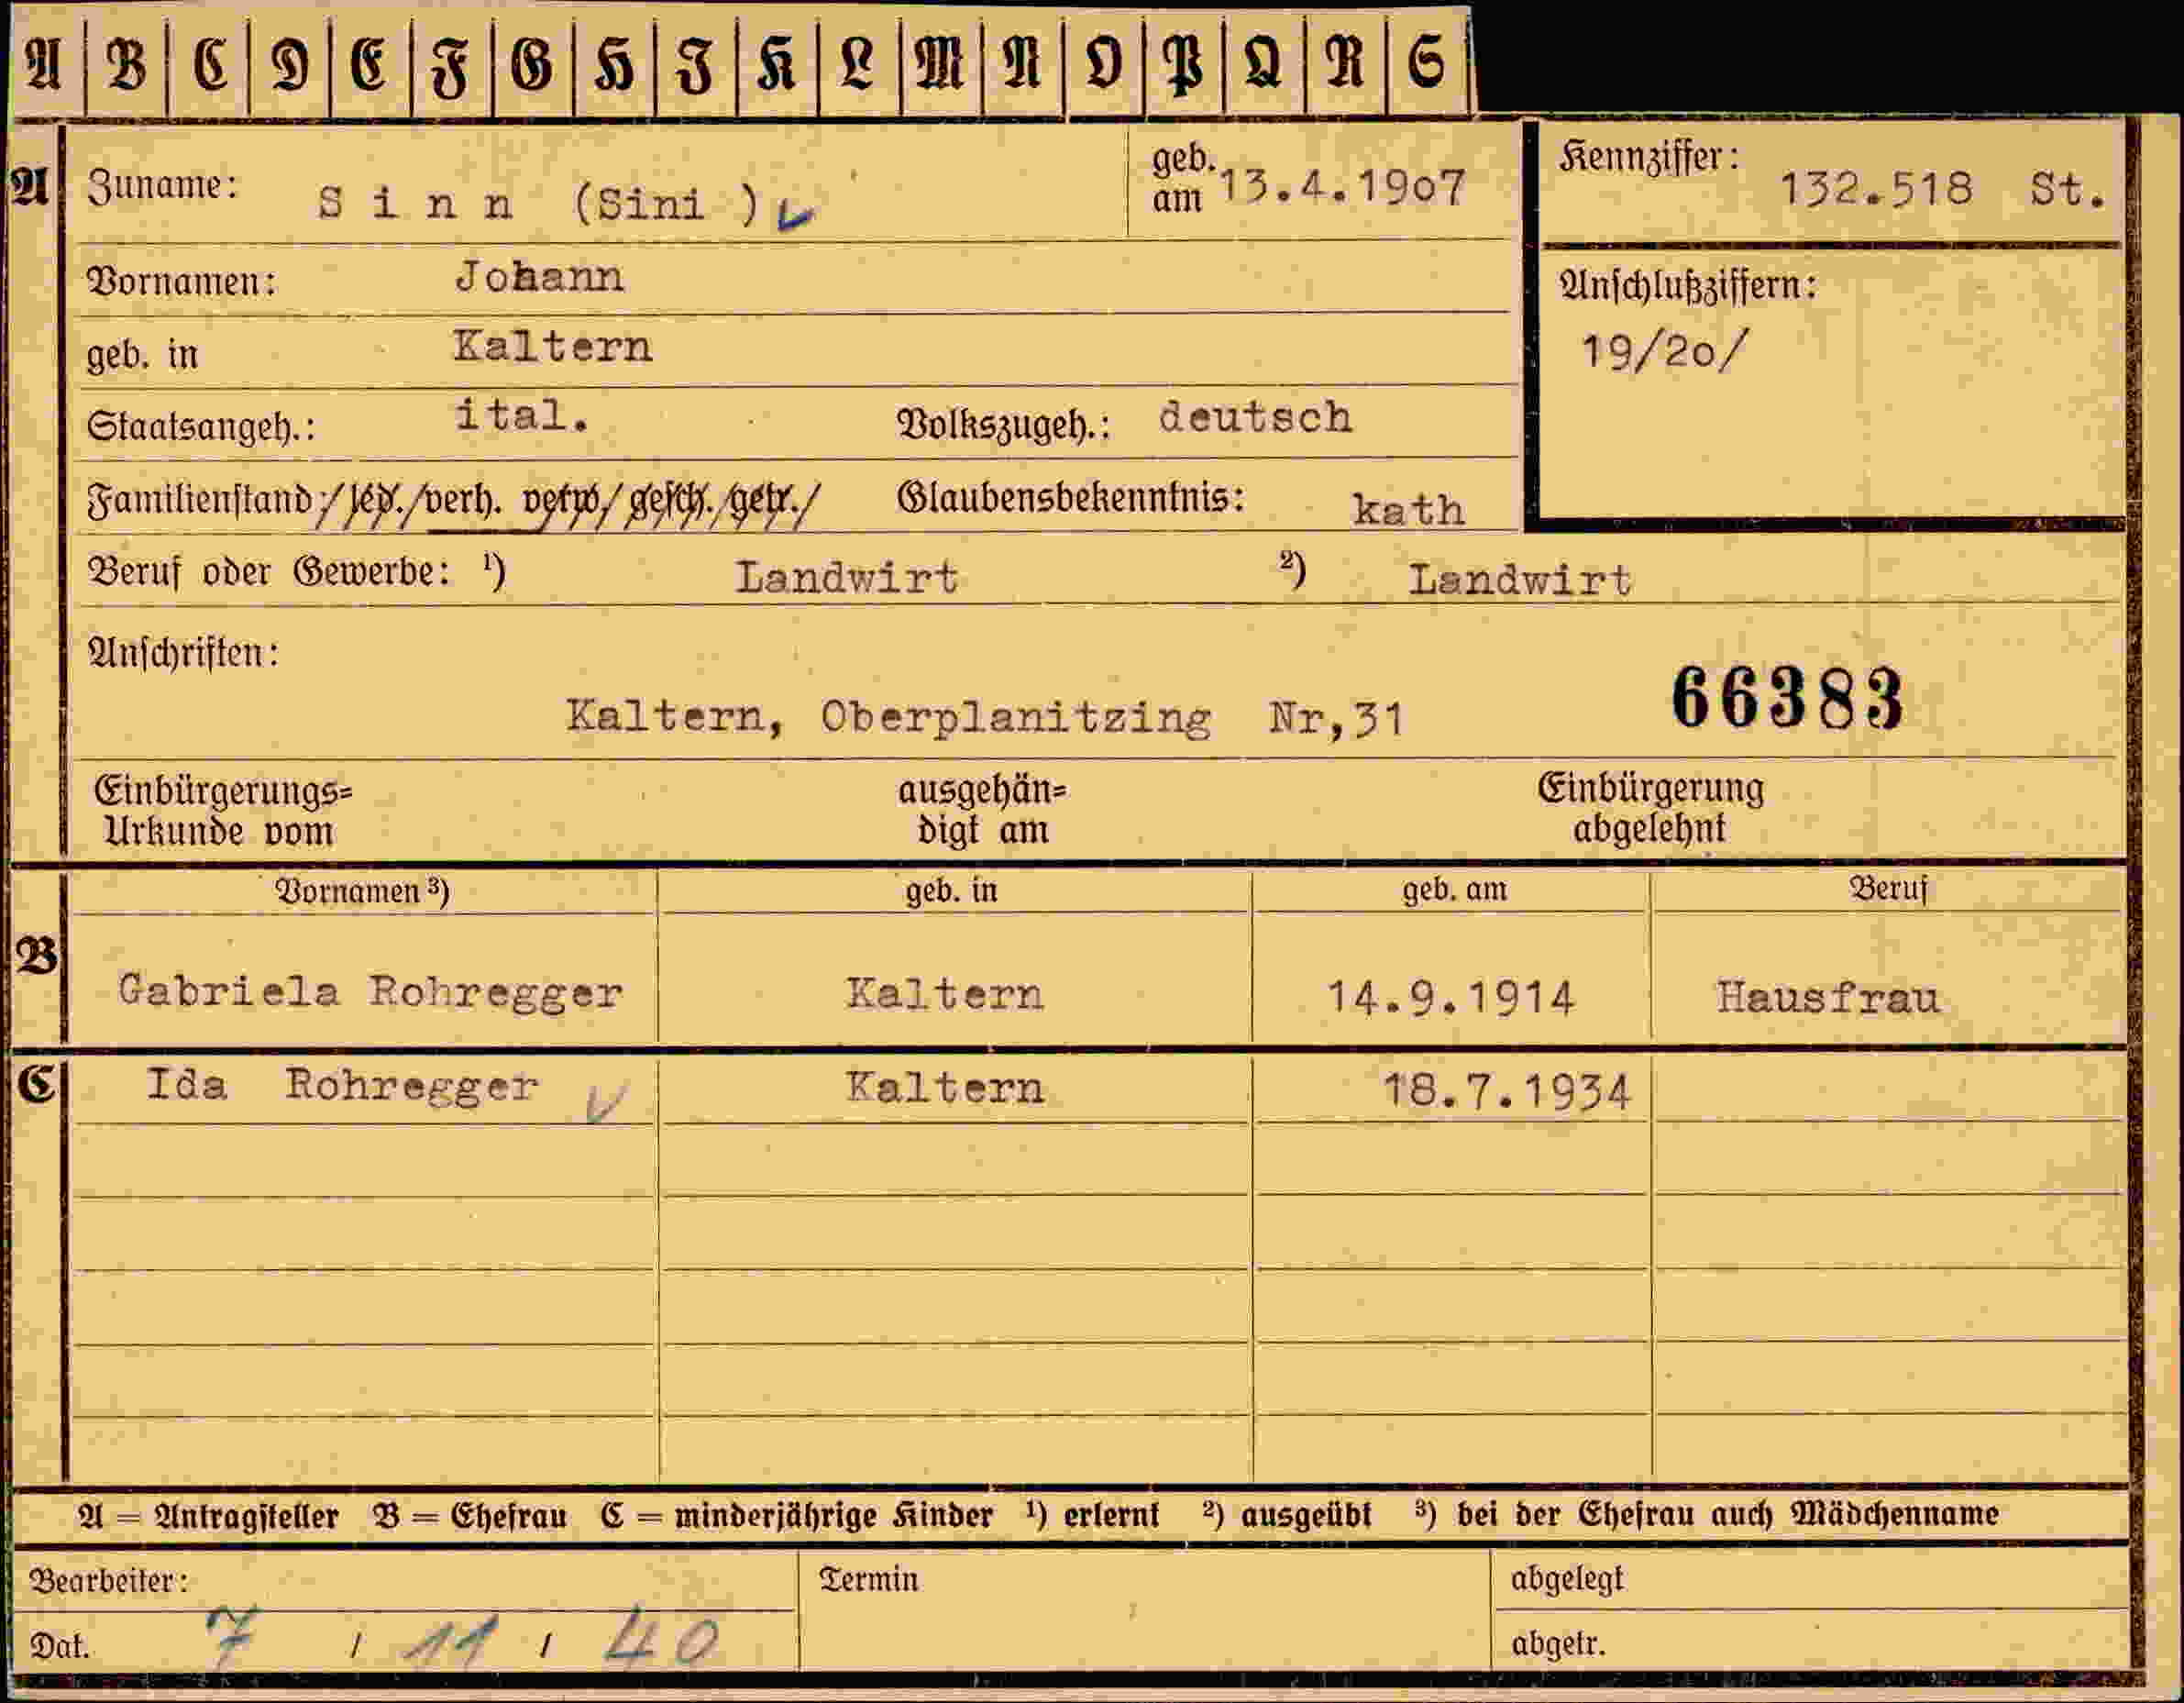 A B C D E F G H J K L M N O P Q R S
A
Zuname: Sinn (Sini ) geb. am 13.4.1907
Kennziffer: 132.518 St.
Vornamen: Johann
Anschlußziffern:
19/20/
geb. in Kaltern
Staatsangeh.: ital. Volkszugeh.: deutsch
Familienstand:/led./verh. verw/gesch./getr./ Glaubensbekenntnis: kath
Beruf oder Gewerbe: ¹) Landwirt ²) Landwirt
Anschriften:
Kaltern, Oberplanitzing Nr,31
66383
Einbürgerungs=
Urkunde vom
ausgehän=
digt am
Einbürgerung
abgelehnt
Vornamen ³) geb. in geb. am Beruf
B
Gabriela Rohregger Kaltern 14.9.1914 Hausfrau
C Ida Rohregger Kaltern 18.7.1934
A = Antragsteller B = Ehefrau C = minderjährige Kinder ¹) erlernt ²) ausgeübt ³) bei der Ehefrau auch Mädchenname
Bearbeiter: Termin abgelegt
Dat. 7 / 11 / 40 abgetr.